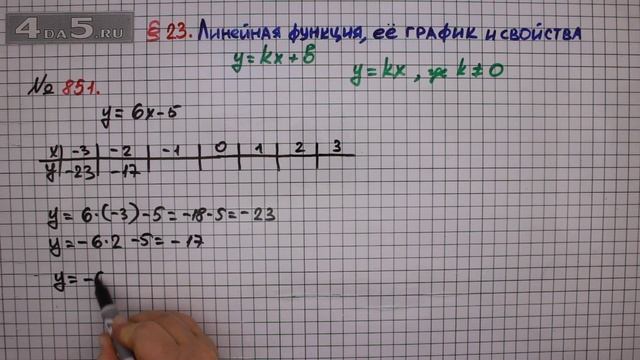 4DA5.RU
§ 23. Линейная функция, её график и свойства
y = kx + b
y = kx, где k ≠ 0
№ 851.
y = 6x - 5
x -3 -2 -1 0 1 2 3
y -23 -17
y = 6·(-3) - 5 = -18 - 5 = -23
y = -6·2 - 5 = -17
y = -6